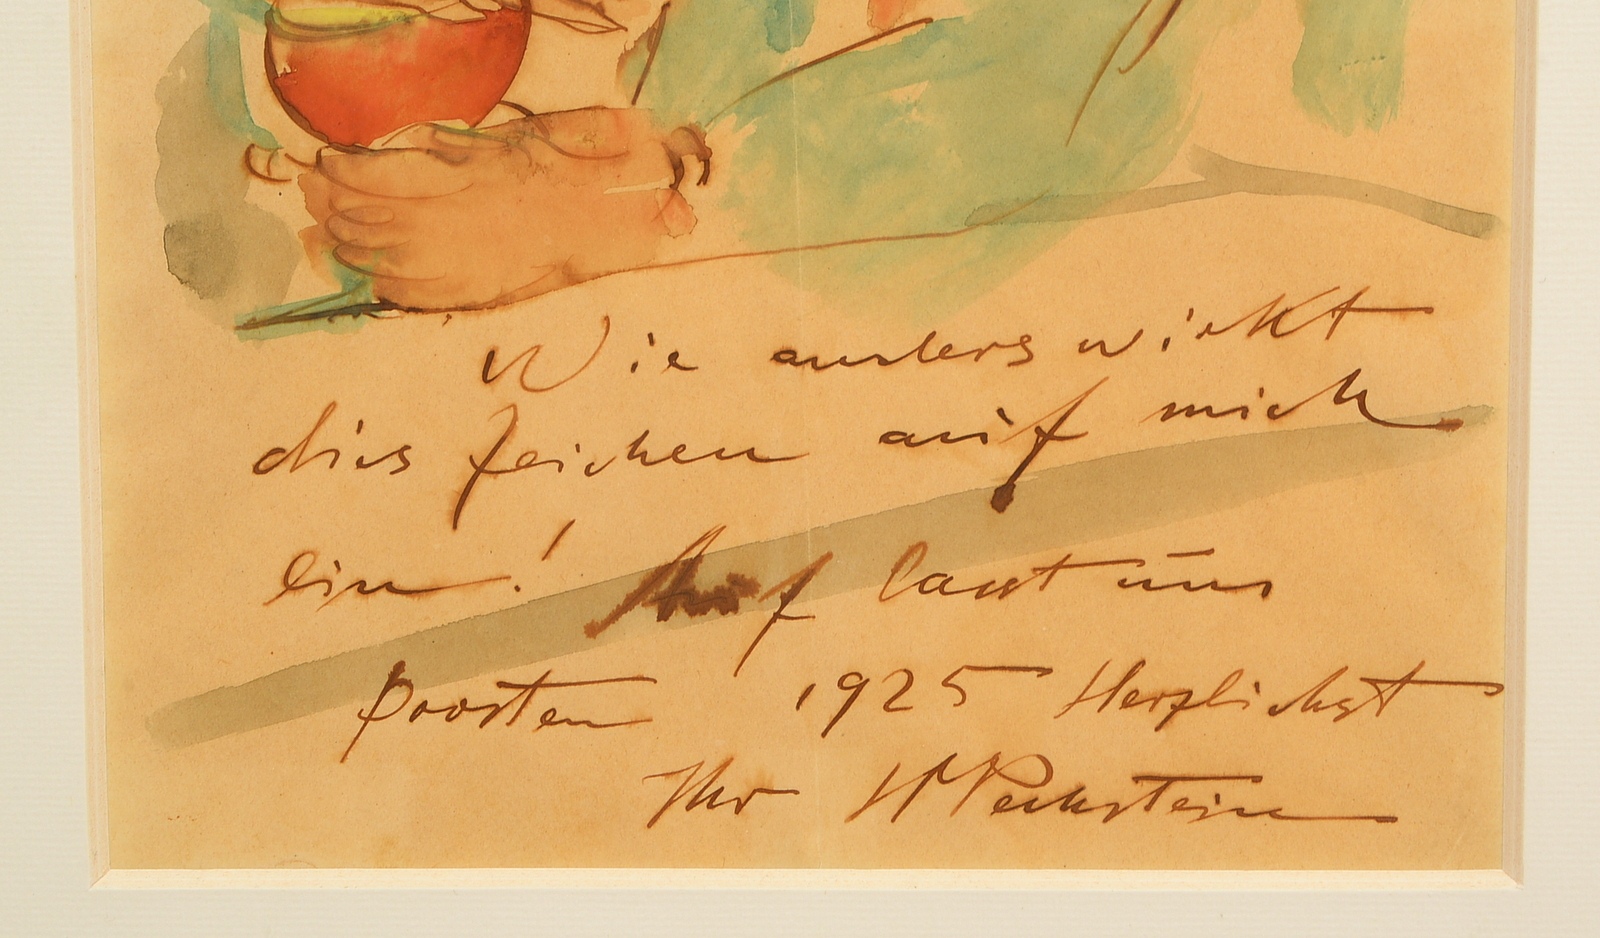 Wie anders wirkt
dies Zeichen auf mich
ein! Auf lasst uns
Poosten 1925 Herzlichst
Ihr HMPechstein